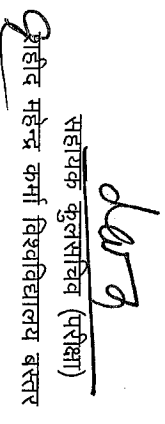 सहायक कुलसचिव (परीक्षा)
शहीद महेन्द्र कर्मा विश्वविद्यालय बस्तर